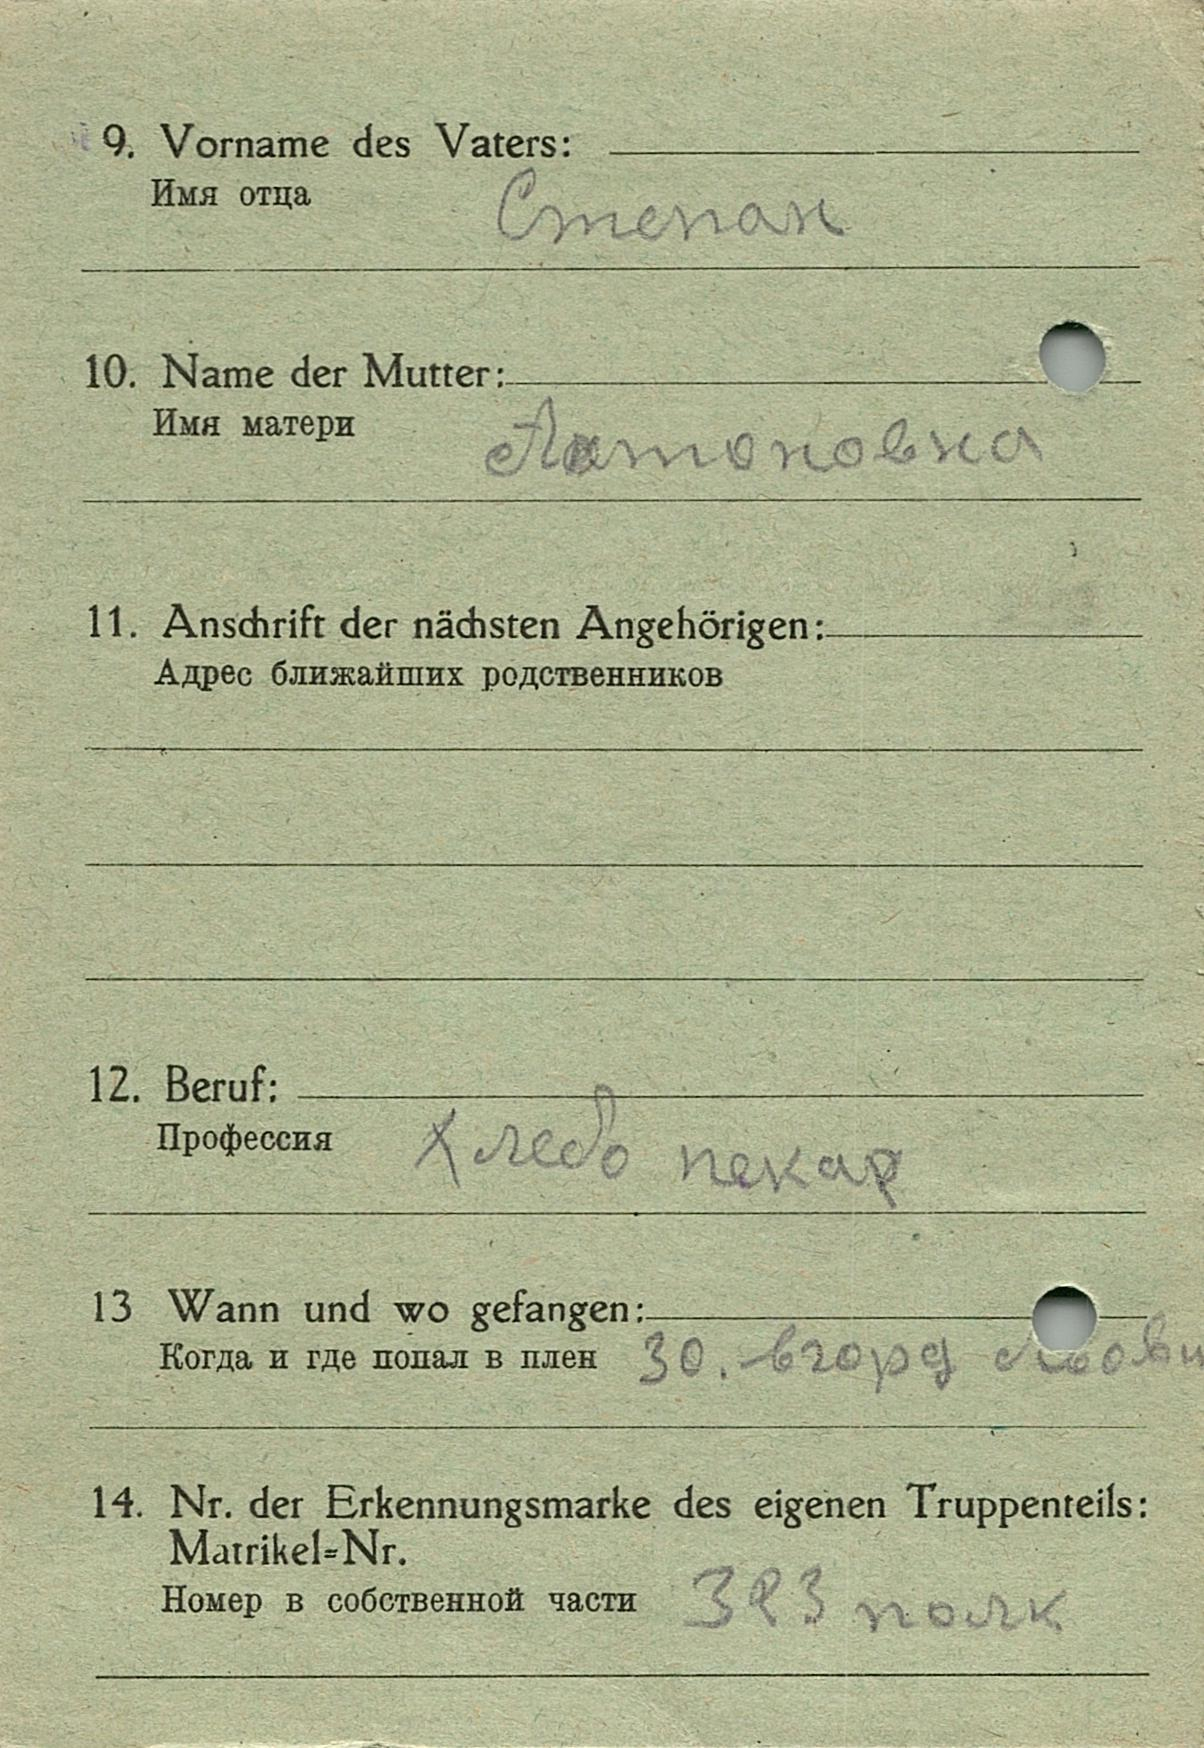 9. Vorname des Vaters:
Имя отца
Степан
10. Name der Mutter:
Имя матери
Антоновна
11. Anschrift der nächsten Angehörigen:
Адрес ближайших родственников
12. Beruf:
Профессия
Хлебо пекар
13 Wann und wo gefangen:
Когда и где попал в плен 30.
14. Nr. der Erkennungsmarke des eigenen Truppenteils:
Matrikel=Nr.
Номер в собственной части 323 полк